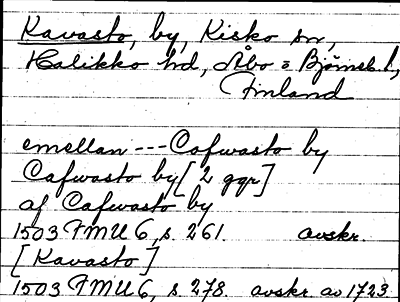 Kavasto, by, Kisko sn,
Halikko hd, Åbo o Björneb. l,
Finland
emellan --- Cafwasto by
Cafwasto by [2 ggr]
af Cafwasto by
1503 FMU 6, s. 261. avskr.
[Kavasto]
1503 FMU 6, s. 278. avskr av 1723